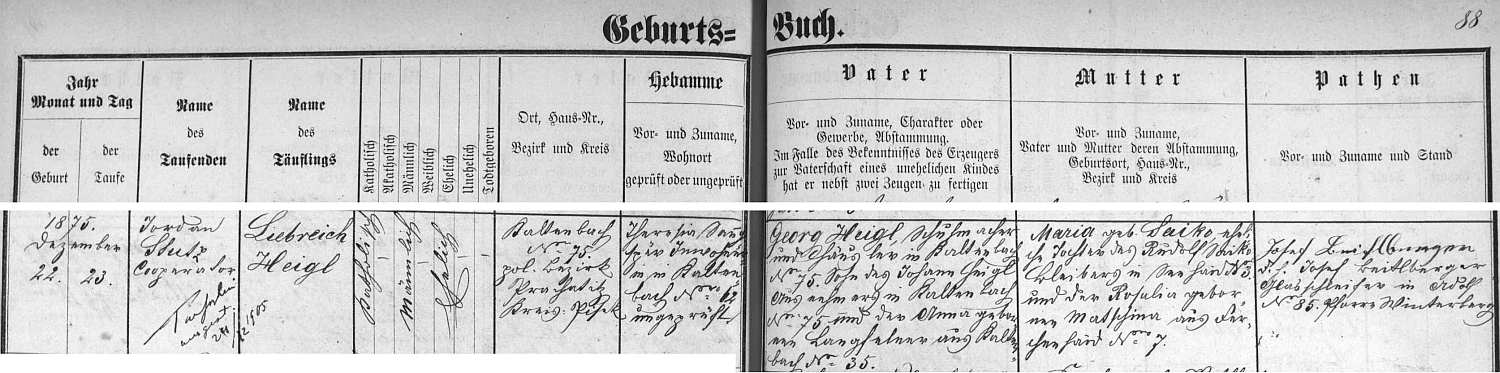 Geburts= Buch.
88
Jahr
Monat und Tag
der
Geburt
der
Taufe
Name
des
Taufenden
Name
des
Täuflings
Katholisch
Akatholisch
Männlich
Weiblich
Ehelich
Unehelich
Todtgeboren
Ort, Haus-Nr.,
Bezirk und Kreis
Hebamme
Vor- und Zuname,
Wohnort
geprüft oder ungeprüft
Vater
Vor- und Zuname, Charakter oder
Gewerbe, Abstammung.
Im Falle des Bekenntnisses des Erzeugers
zur Vaterschaft eines unehelichen Kindes
hat er nebst zwei Zeugen zu fertigen
Mutter
Vor- und Zuname,
Vater und Mutter deren Abstammung,
Geburtsort, Haus-Nr.,
Bezirk und Kreis
Pathen
Vor- und Zuname und Stand
1875.
Dezember
22. 23.
Jordan
Stutz
Cooperator
1905
Liebreich
Heigl
Katholisch
Männlich
Ehelich
Kaltenbach
No 75.
pol. Bezirk
Prachatitz
Kreis: Pisek
Theresia
Inwohner
in in Kalten
bach No 62
ungeprüft
Georg Heigl, Schuhmacher
und Häusler in Kaltenbach
No 75. Sohn des Johann Heigl
Ausnehmers in Kaltenbach
No 75 und der Anna gebor
nen Langfelner aus Kalten
bach No 35.
Maria geb. Saiko, eheli
che Tochter des Rudolf Saiko
Bleibers in Seehaid No 3.
und der Rosalia gebor
nen Matschina aus Fer
chenhaid No 7.
Josef Beitlberger
d. i. Josef Beitlberger
Glasschleifer in Adolf
No 85. Pfarre Winterberg